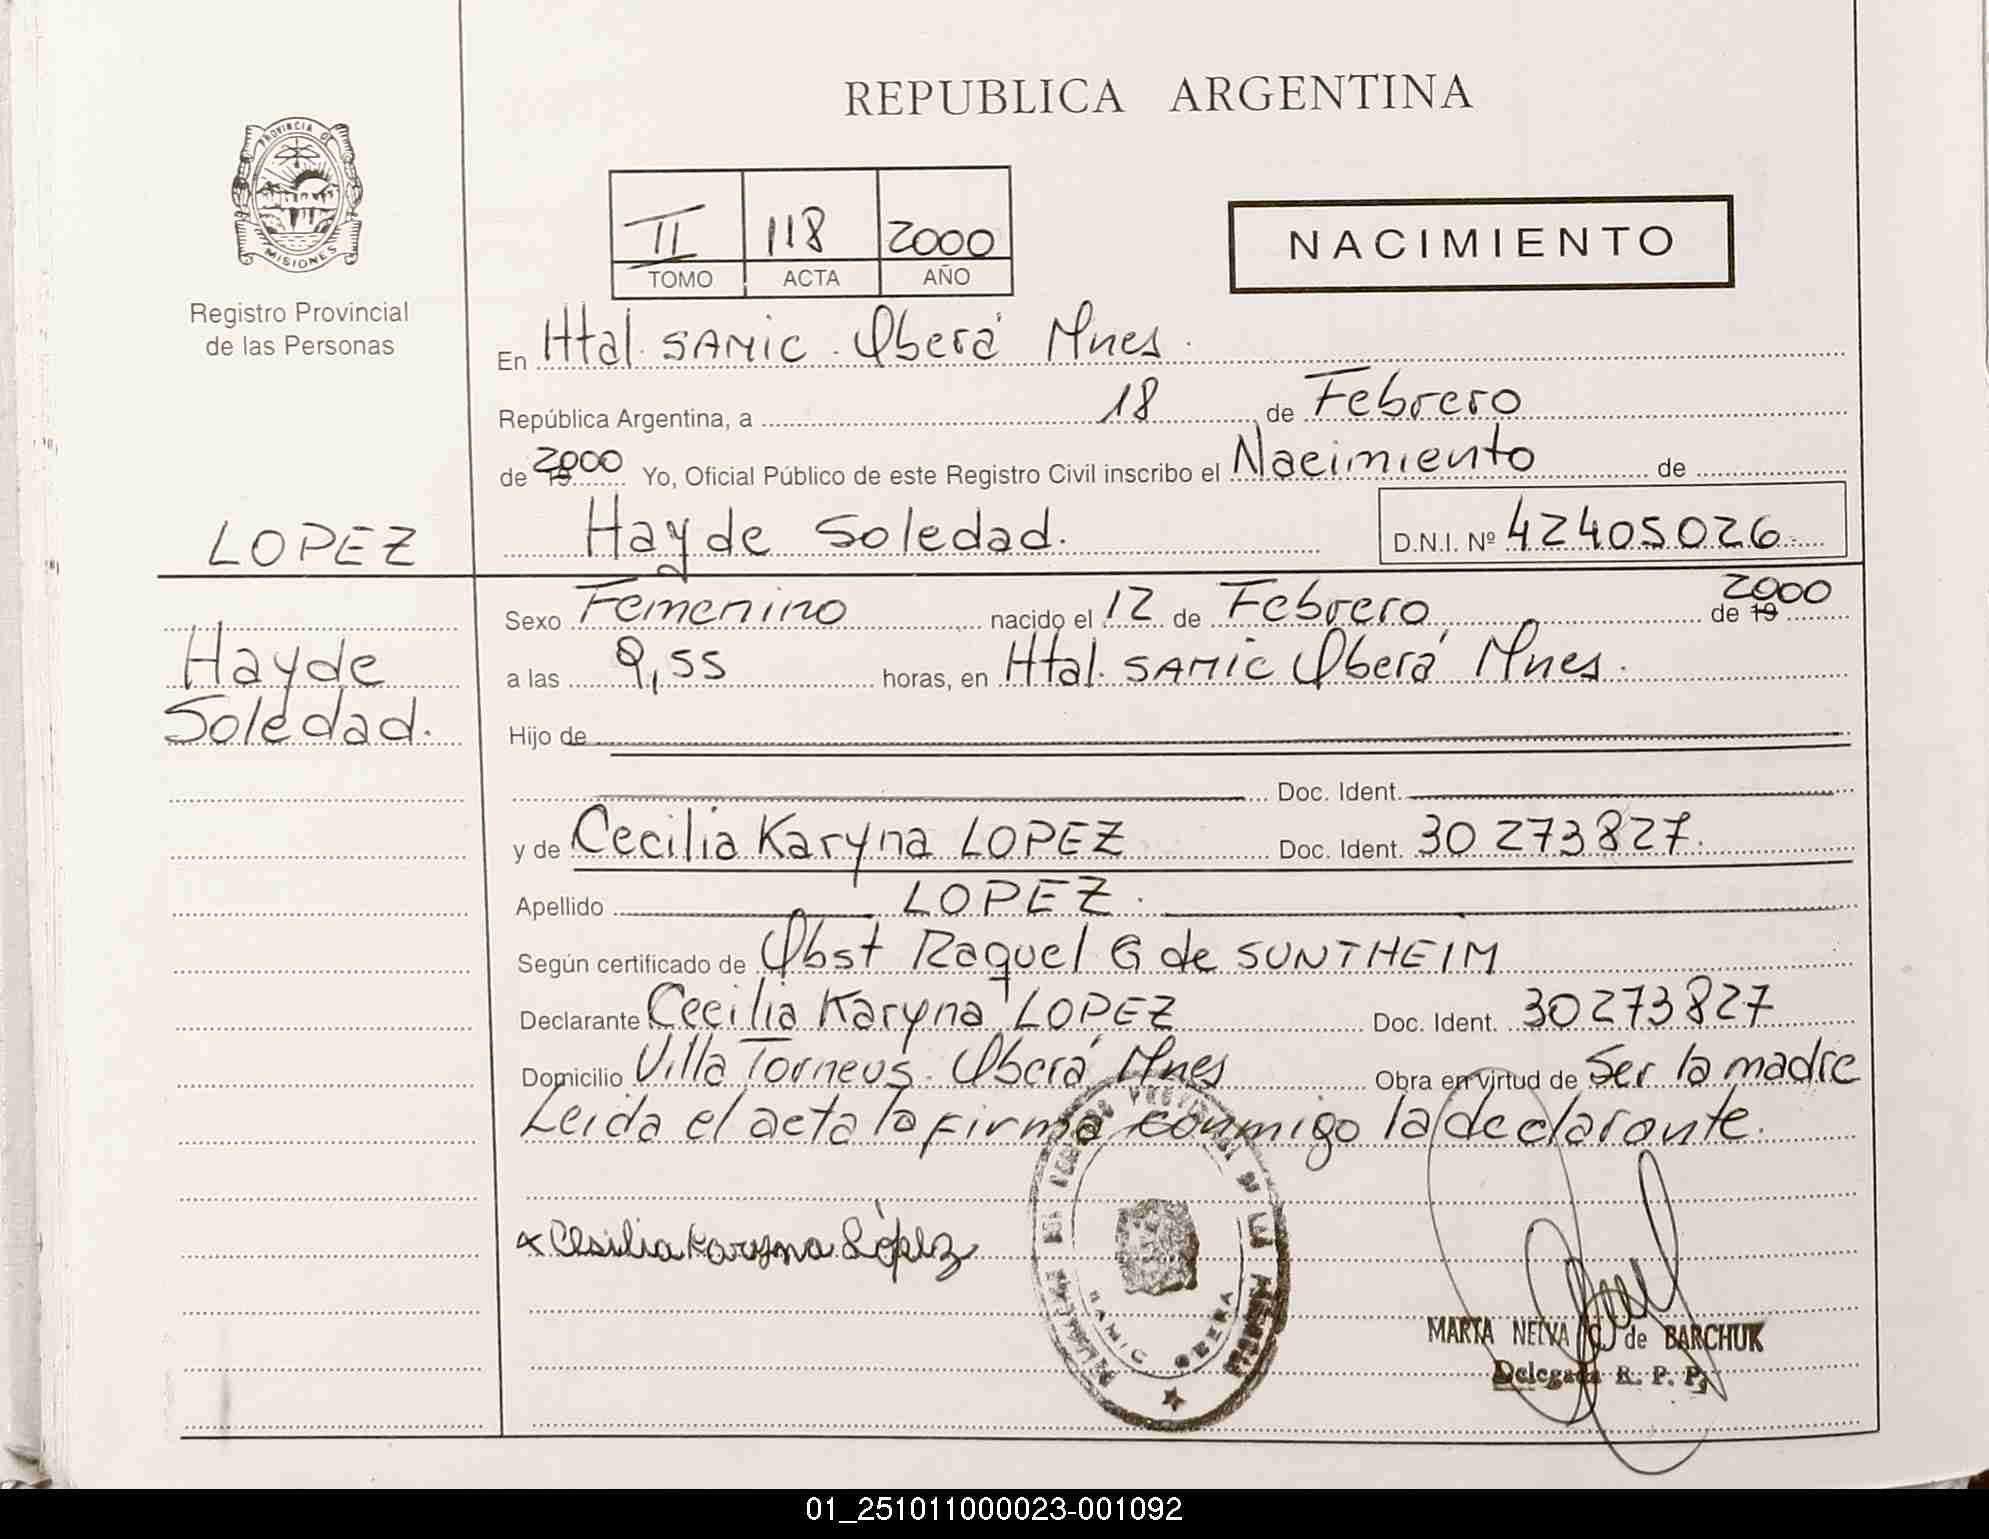 REPUBLICA ARGENTINA
PROVINCIA DE
MISIONES
Registro Provincial
de las Personas
II 118 2000
TOMO ACTA AÑO
NACIMIENTO
En Htal. SAMIC. Oberá Mnes.
República Argentina, a 18 de Febrero
de 19 2000 Yo, Oficial Público de este Registro Civil inscribo el Nacimiento de
LOPEZ
Hayde Soledad. D.N.I. Nº 42405026.-
Hayde
Soledad.
Sexo Femenino nacido el 12 de Febrero de 19 2000
a las 9,55 horas, en Htal. SAMIC Oberá Mnes.
Hijo de
Doc. Ident.
y de Cecilia Karyna LOPEZ Doc. Ident. 30 273827.
Apellido LOPEZ.
Según certificado de Obst Raquel G de SUNTHEIM
Declarante Cecilia Karyna LOPEZ Doc. Ident. 30273827
Domicilio Villa Torneus. Oberá Mnes Obra en virtud de Ser la madre
Leida el acta la firma conmigo la declarante.
x Cesilia Karyna López
SAMIC OBERA
MARTA NELVA C. de BARCHUK
Delegada R. P. P.
01_251011000023-001092